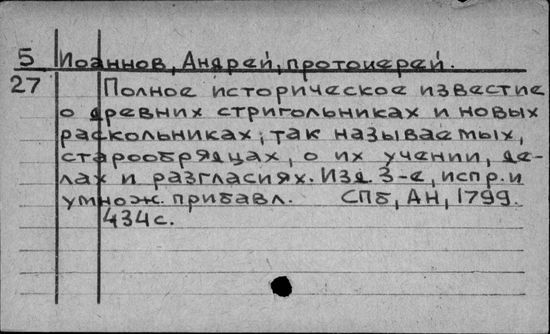 5 Иоаннов, Андрей, протоиерей.
27 Полное историческое известие
о древних стригольниках и новых
раскольниках, так называемых,
старообрядцах, о их учении, де-
лах и разгласиях. Изд. 3-е, испр. и
умнож. прибавл. СПб, АН, 1799.
434 с.